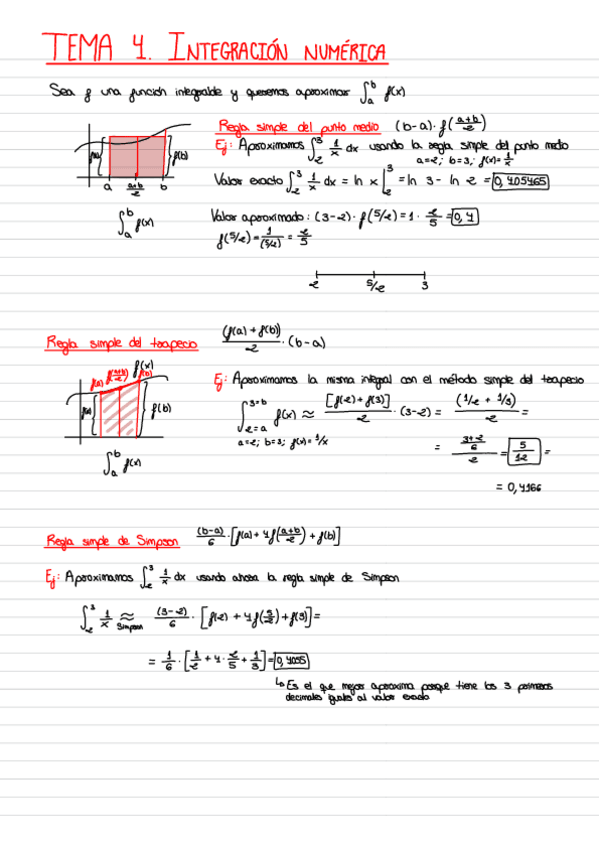 TEMA 4. INTEGRACIÓN NUMÉRICA
Sea f una función integrable y queremos aproximar ∫_a^b f(x)
Regla simple del punto medio (b-a)·f((a+b)/2)
Ej: Aproximamos ∫_2^3 1/x dx usando la regla simple del punto medio
a=2; b=3; f(x)=1/x
f(a) f(b)
a (a+b)/2 b
∫_a^b f(x)
Valor exacto ∫_2^3 1/x dx = ln x |_2^3 = ln 3 - ln 2 = 0,405465
Valor aproximado: (3-2)·f(5/2) = 1·2/5 = 0,4
f(5/2) = 1/(5/2) = 2/5
2 5/2 3
Regla simple del trapecio (f(a)+f(b))/2 ·(b-a)
f(a) f((a+b)/2) f(b) f(x)
f(a) f(b)
∫_a^b f(x)
Ej: Aproximamos la misma integral con el método simple del trapecio
∫_{2=a}^{3=b} f(x) ≈ [f(2)+f(3)]/2 ·(3-2) = (1/2 + 1/3)/2 =
a=2; b=3; f(x)=1/x
= ((3+2)/6)/2 = 5/12 =
= 0,4166
Regla simple de Simpson (b-a)/6 ·[f(a)+4f((a+b)/2)+f(b)]
Ej: Aproximamos ∫_2^3 1/x dx usando ahora la regla simple de Simpson
∫_2^3 1/x ≈ Simpson (3-2)/6 · [f(2) + 4f(5/2)+f(3)] =
= 1/6 ·[1/2 + 4·2/5 + 1/3] = 0,4055
↳ Es el que mejor aproxima porque tiene los 3 primeros
decimales iguales al valor exacto